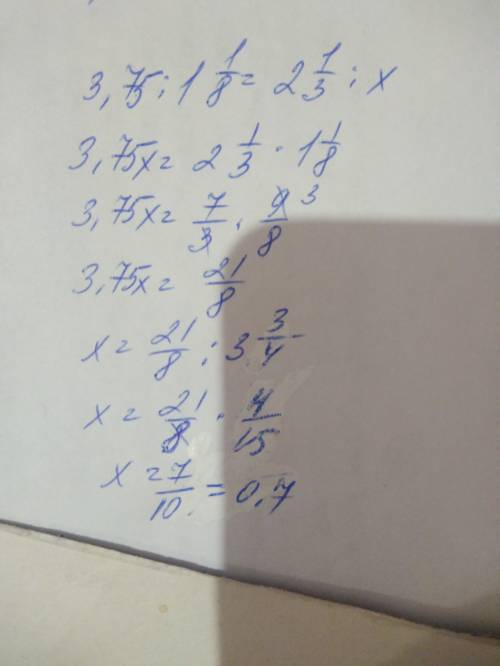 3,75 : 1 1/8 = 2 1/3 : x
3,75x = 2 1/3 · 1 1/8
3,75x = 7/3 · 9/8 3
3,75x = 21/8
x = 21/8 : 3 3/4
x = 21/8 · 4/15
x = 7/10 = 0,7